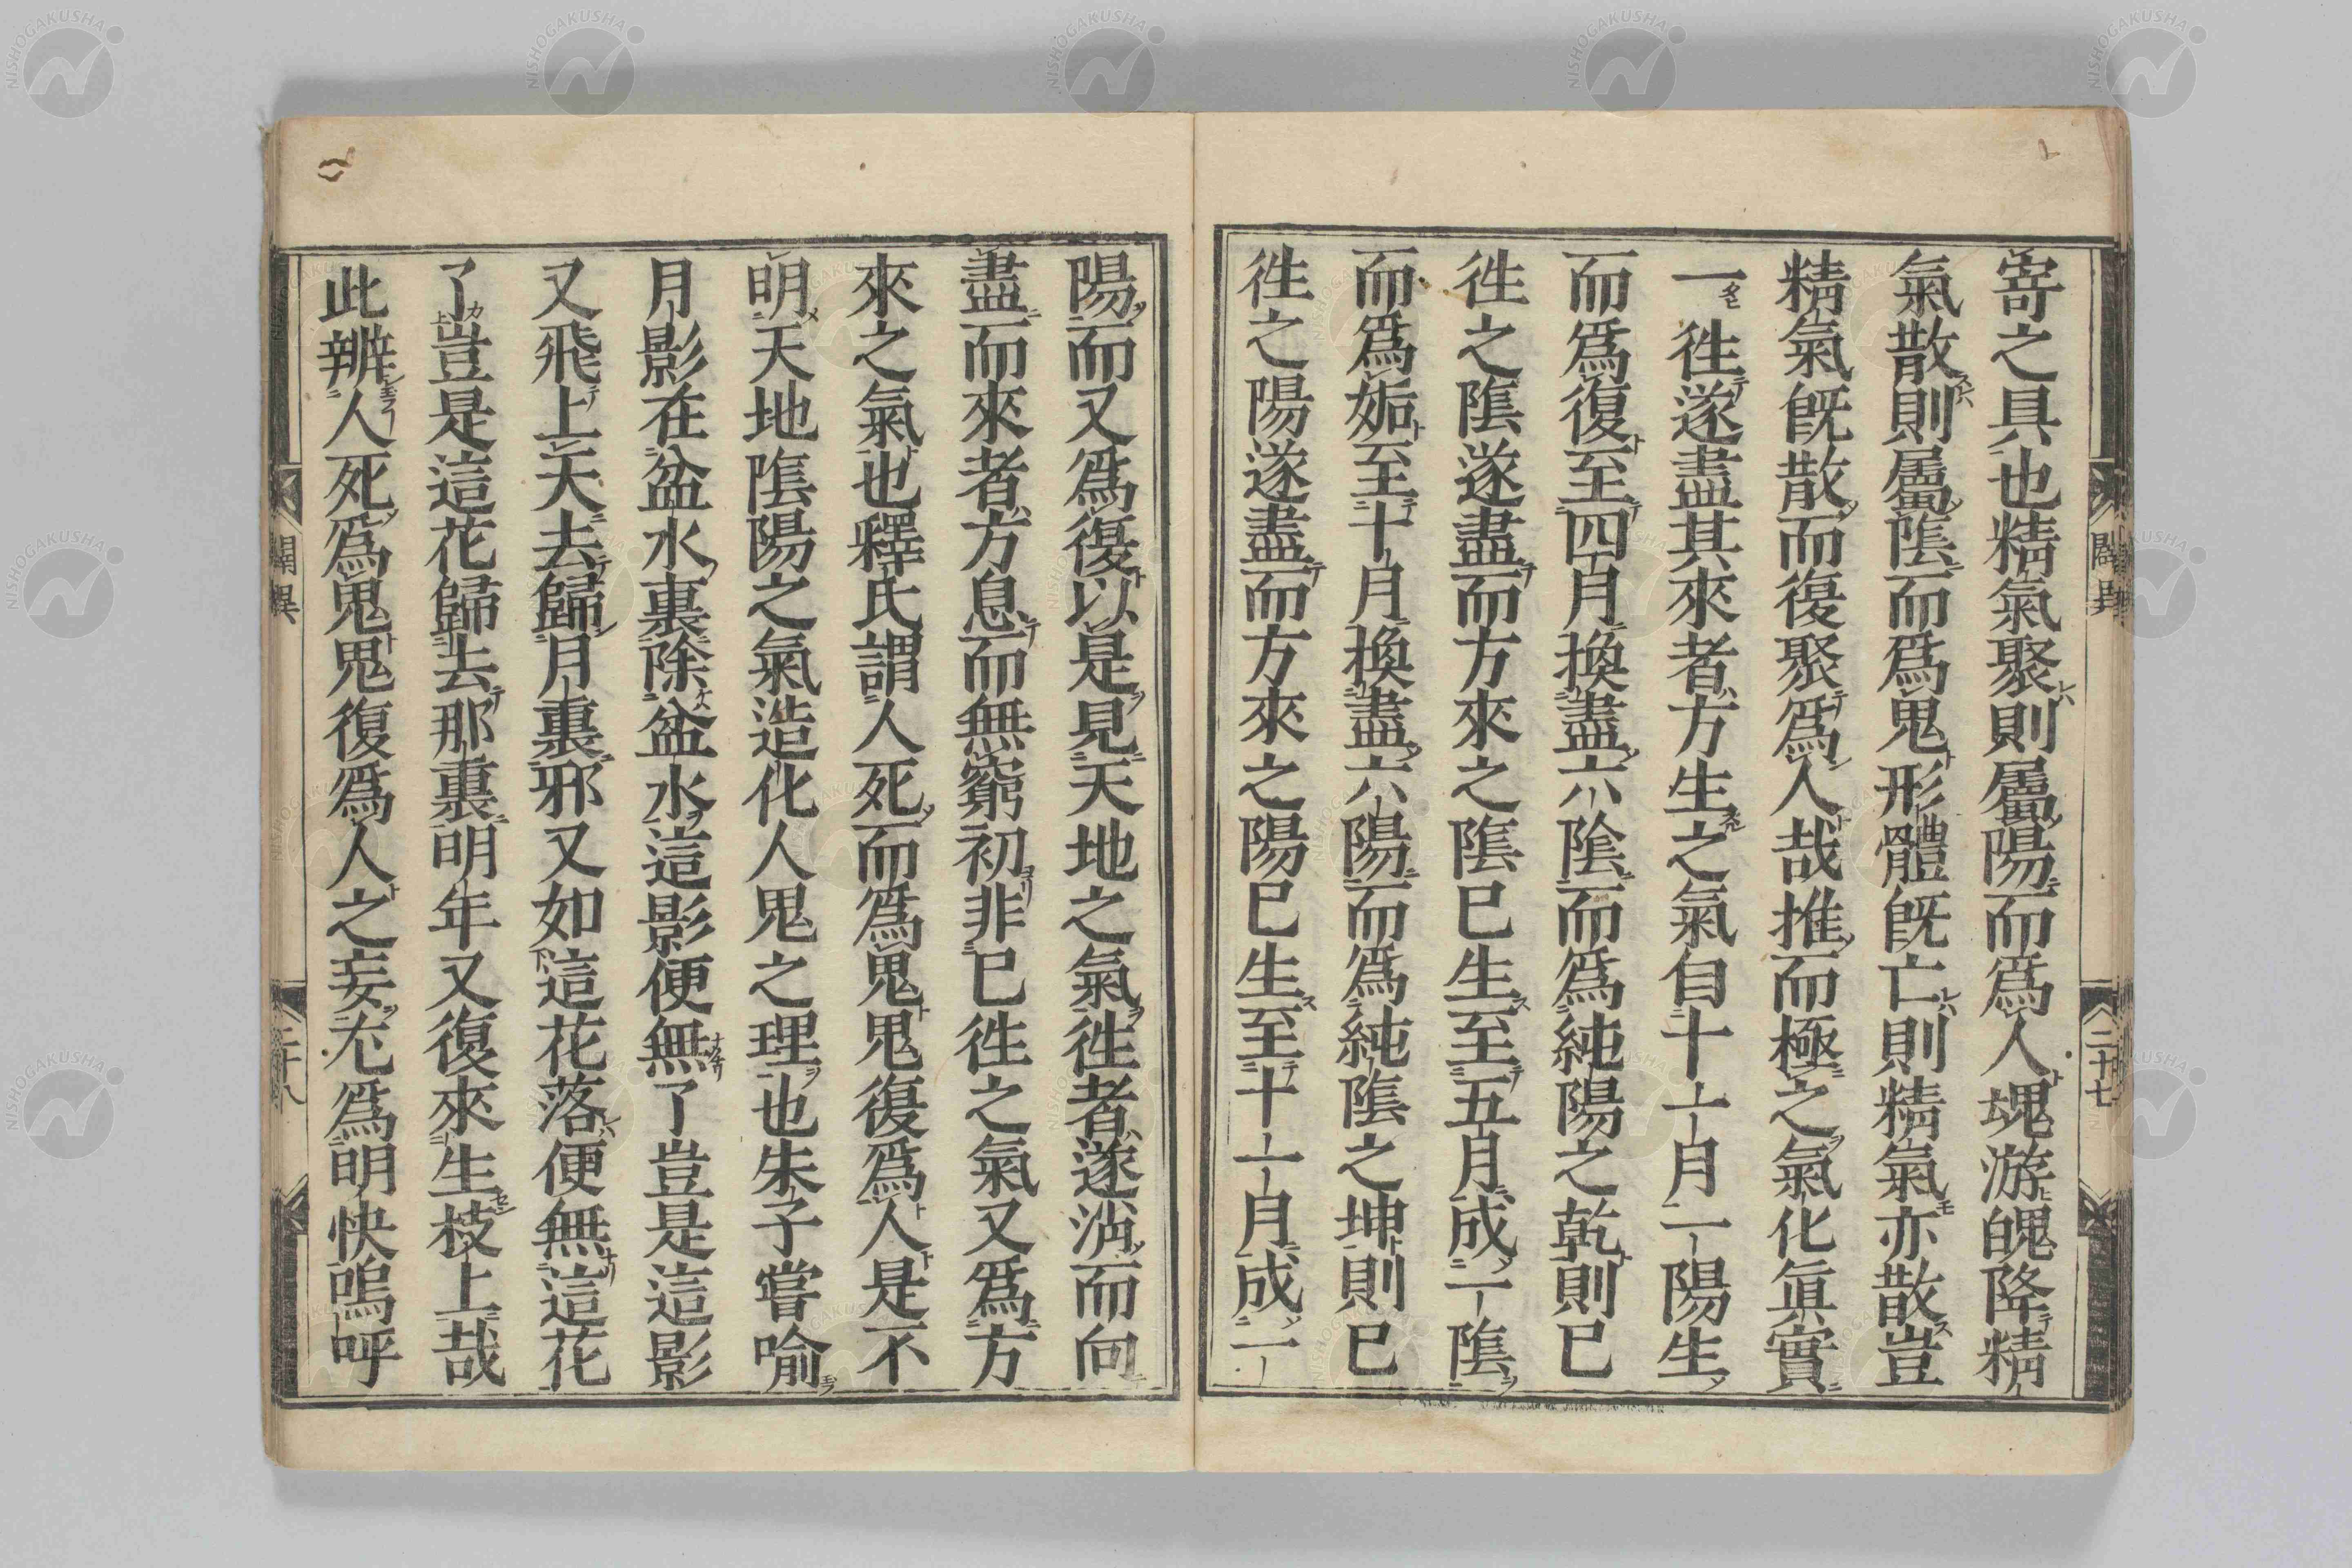 寄之具也精氣聚則屬陽而爲人魂游魄降精
氣散則屬陰而爲鬼形體既亡則精氣亦散豈
精氣既散而復聚爲人哉推而極之氣化眞實
一徃遂盡其來者方生之氣自十一月一陽生
而爲復至四月換盡六陰而爲純陽之乾則已
徃之陰遂盡而方來之陰已生至五月成一陰
而爲姤至十月換盡六陽而爲純陰之坤則已
徃之陽遂盡而方來之陽已生至十一月成一
闢異
二十七
陽而又爲復以是見天地之氣徃者遂消而向
盡而來者方息而無窮初非已徃之氣又爲方
來之氣也釋氏謂人死而爲鬼鬼復爲人是不
明天地陰陽之氣造化人鬼之理也朱子嘗喻
月影在盆水裏除盆水這影便無了豈是這影
又飛上天去歸月裏邪又如這花落便無這花
了豈是這花歸去那裏明年又復來生枝上哉
此辨人死爲鬼鬼復爲人之妄尤爲明快嗚呼
闢異
二十八
NISHOGAKUSHA